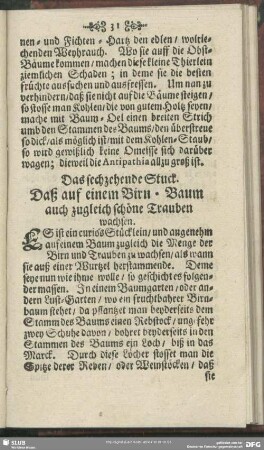 31
nen- und Fichten-Hartz den edlen/ wolrie-
chenden Weyhrauch. Wo sie auff die Obst-
Bäume kommen/ machen diese kleine Thierlein
ziemlichen Schaden; in deme sie die besten
früchte aussuchen und ausfressen. Um nan zu
verhindern/ daß sie nicht auf die Bäume steigen/
so stosse man Kohlen/ die von gutem Holtz seyen/
mache mit Baum-Oel einen breiten Strich
umb den Stammen des Baums/ den überstreue
so dick/ als möglich ist/ mit dem Kohlen-Staub/
so wird gewißlich keine Omeisse sich darüber
wagen; dieweil die Antipathia allzu groß ist.
Das sechzehende Stuck.
Daß auf einem Birn-Baum
auch zugleich schöne Trauben
wachsen.
ES ist ein curiös Stücklein/ und angenehm
auf einem Baum zugleich die Menge der
Birn und Trauben zu wachsen/ als wann
sie auß einer Wurtzel herstammende. Deme
seye nun wie ihme wolle/ so geschicht es folgen-
der massen. In einem Baumgarten/ oder an-
dern Lust-Garten/ wo ein fruchtbahrer Birn-
baum stehet/ da pflantzet man beyderseits dem
Stamm des Baums einen Rebstock/ ung-fehr
zwey Schuhe davon/ bohret beyderseits in den
Stammen des Baums ein Loch/ biß in das
Marck. Durch diese Löcher stosset man die
Spitze derer Reben/ oder Weinstöcken/ daß
sie
SLUB
DFG